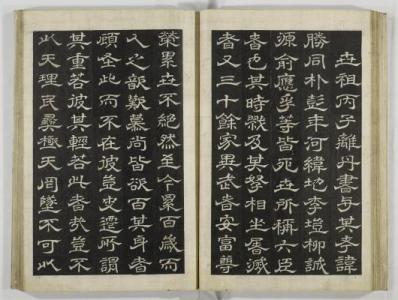 世祖丙子離丹書與其考諱
勝同朴彭年河緯地李塏柳誠
源俞應孚等皆死世所稱六臣
者也其時戮及其孥相坐屠滅
者又三十餘家異者安富尊
榮累世不絕然至今累百歲而
人之歆歎慕尚皆欲百其身者
顧在此而不在彼豈史遷所謂
其重若彼其輕若此者哉豈不
以天理民彝極天罔墜不可以